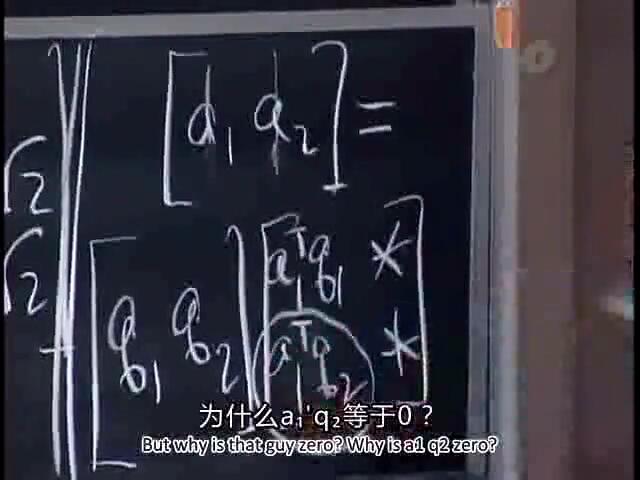 [a₁ a₂] =
√2
√2
[q₁ q₂] [a₁ᵀq₁ *
a₁ᵀq₂ *]
为什么a₁'q₂等于0？
But why is that guy zero? Why is a1 q2 zero?